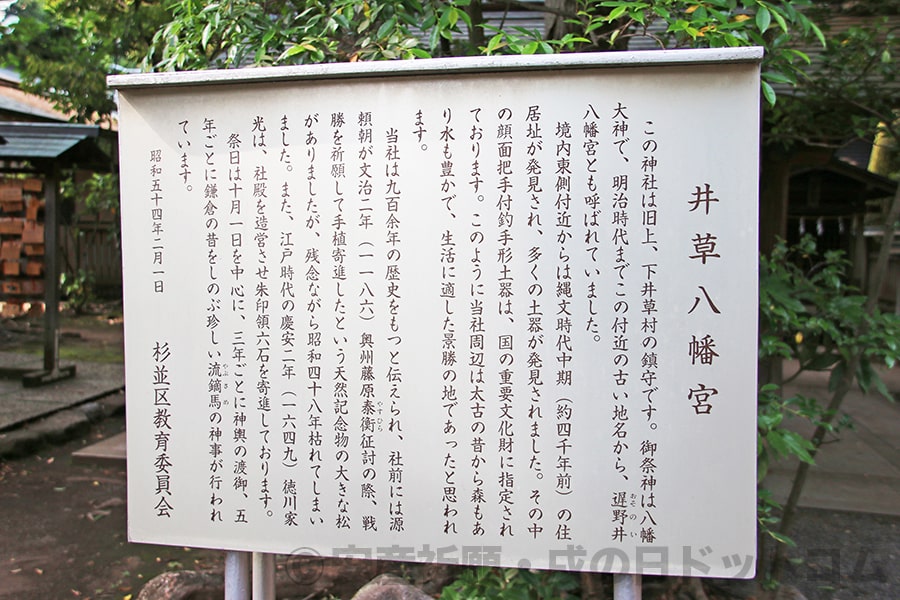 井草八幡宮
この神社は旧上、下井草村の鎮守です。御祭神は八幡
大神で、明治時代までこの付近の古い地名から、遅野井
おそのい
八幡宮とも呼ばれていました。
境内東側付近からは縄文時代中期(約四千年前)の住
居址が発見され、多くの土器が発見されました。その中
の顔面把手付釣手形土器は、国の重要文化財に指定され
ております。このように当社周辺は太古の昔から森もあ
り水も豊かで、生活に適した景勝の地であったと思われ
ます。
当社は九百余年の歴史をもつと伝えられ、社前には源
頼朝が文治二年(一一八六)奥州藤原泰衡征討の際、戦
やすひら
勝を祈願して手植寄進したという天然記念物の大きな松
がありましたが、残念ながら昭和四十八年枯れてしまい
ました。また、江戸時代の慶安二年(一六四九)徳川家
光は、社殿を造営させ朱印領六石を寄進しております。
祭日は十月一日を中心に、三年ごとに神輿の渡御、五
年ごとに鎌倉の昔をしのぶ珍しい流鏑馬の神事が行われ
やぶさめ
ています。
昭和五十四年二月一日
杉並区教育委員会
©安産祈願・戌の日ドットコム